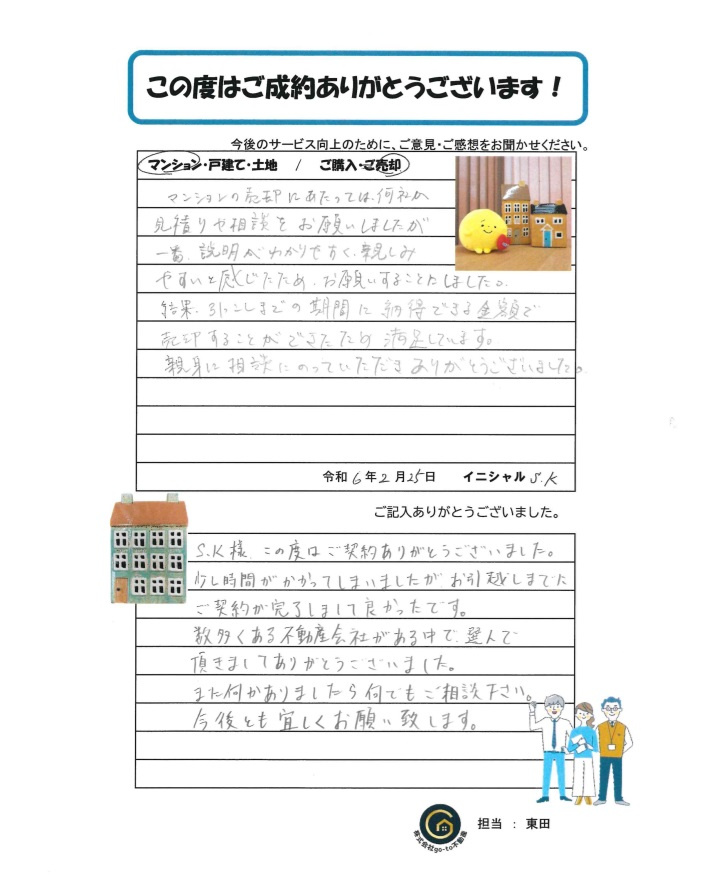 この度はご成約ありがとうございます！
今後のサービス向上のために、ご意見・ご感想をお聞かせください。
マンション・戸建て・土地　/　ご購入・ご売却
マンションの売却にあたっては、何社か
見積りや相談をお願いしましたが
一番、説明がわかりやすく、親しみ
やすいと感じたため、お願いすることにしました。
結果、引こしまでの期間に納得できる金額で
売却することができたため満足しています。
親身に相談にのっていただきありがとうございました。
令和 6 年 2 月 25 日　イニシャル S.K
ご記入ありがとうございました。
S.K様 この度はご契約ありがとうございました。
少し時間がかかってしまいましたが、お引越しまでに
ご契約が完了しまして良かったです。
数多くある不動産会社がある中で、選んで
頂きましてありがとうございました。
また何かありましたら何でもご相談下さい。
今後とも宜しくお願い致します。
担当 ： 東田
株式会社go-to不動産